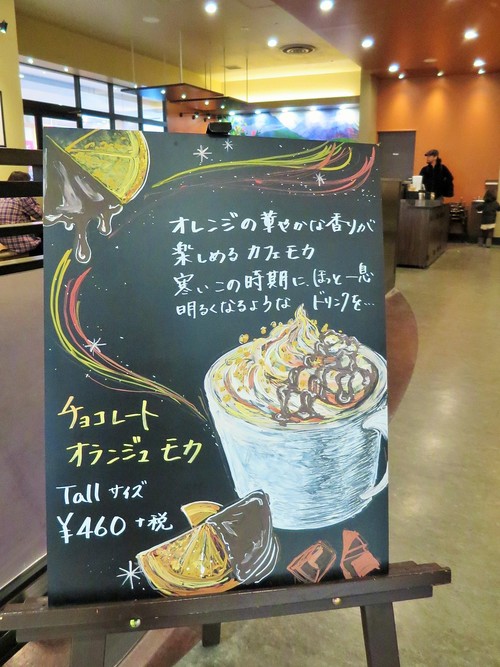 オレンジの華やかな香りが
楽しめる カフェモカ
寒いこの時期に、ほっと一息
明るくなるような ドリンクを…
チョコレート
オランジュ モカ
Tall サイズ
¥460 +税